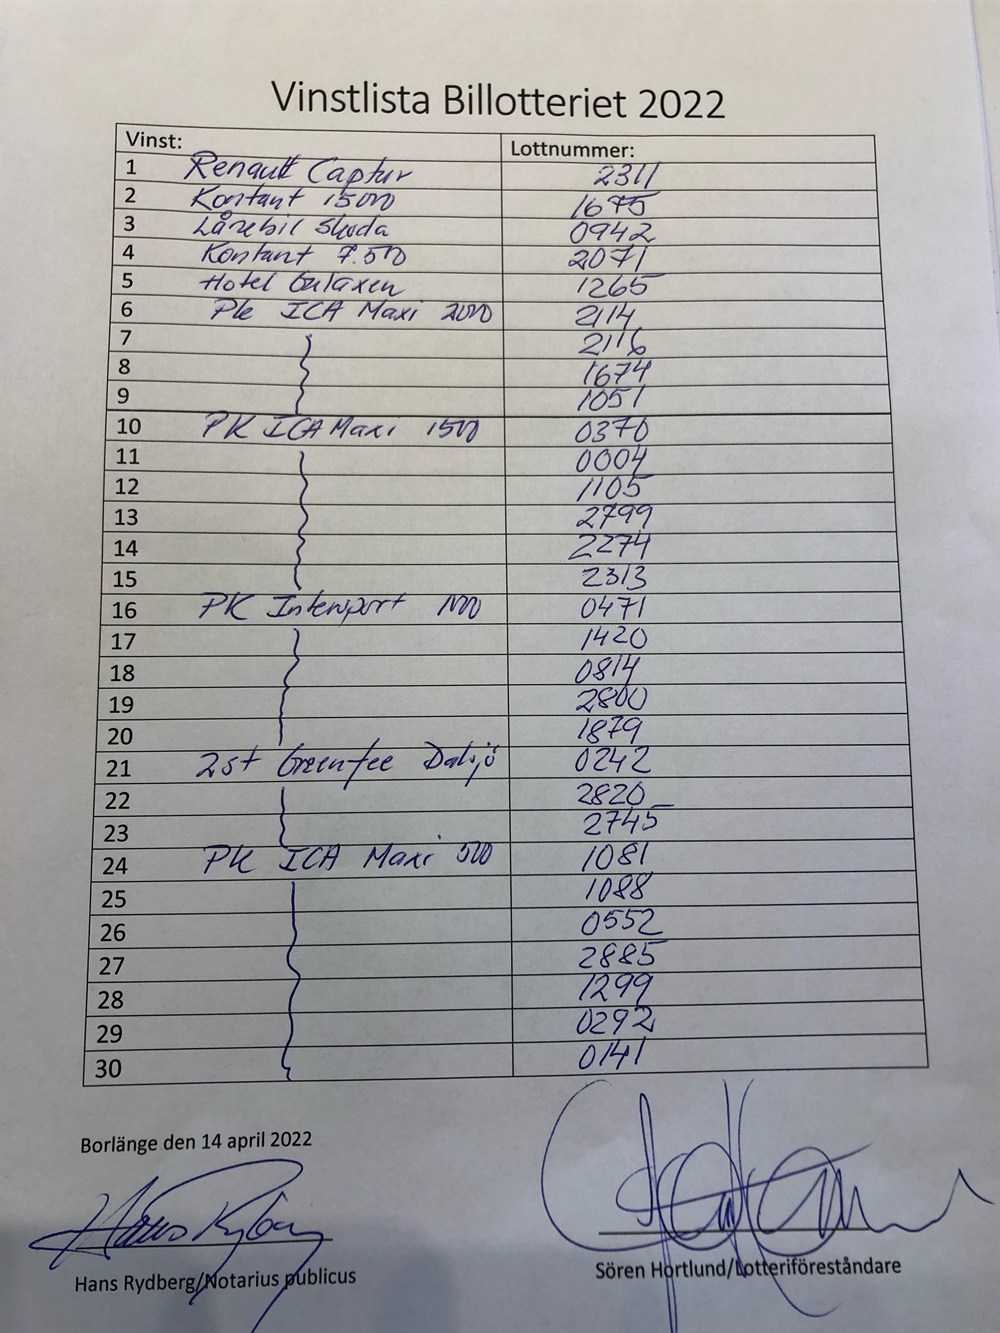 Vinstlista Billotteriet 2022
Vinst: Lottnummer:
1 Renault Captur 2311
2 Kontant 15000 1675
3 Lånebil Skoda 0942
4 Kontant 7.500 2071
5 Hotel Galaxen 1265
6 PK ICA Maxi 2000 2114
7 2116
8 1674
9 1051
10 PK ICA Maxi 1500 0370
11 0004
12 1105
13 2799
14 2274
15 2313
16 PK Intersport 1000 0471
17 1420
18 0814
19 2800
20 1879
21 2st Greenfee Dalsjö 0242
22 2820
23 2745
24 PK ICA Maxi 500 1081
25 1088
26 0552
27 2885
28 1299
29 0292
30 0141
Borlänge den 14 april 2022
Hans Rydberg
Hans Rydberg/Notarius publicus
Sören Hortlund/Lotteriföreståndare